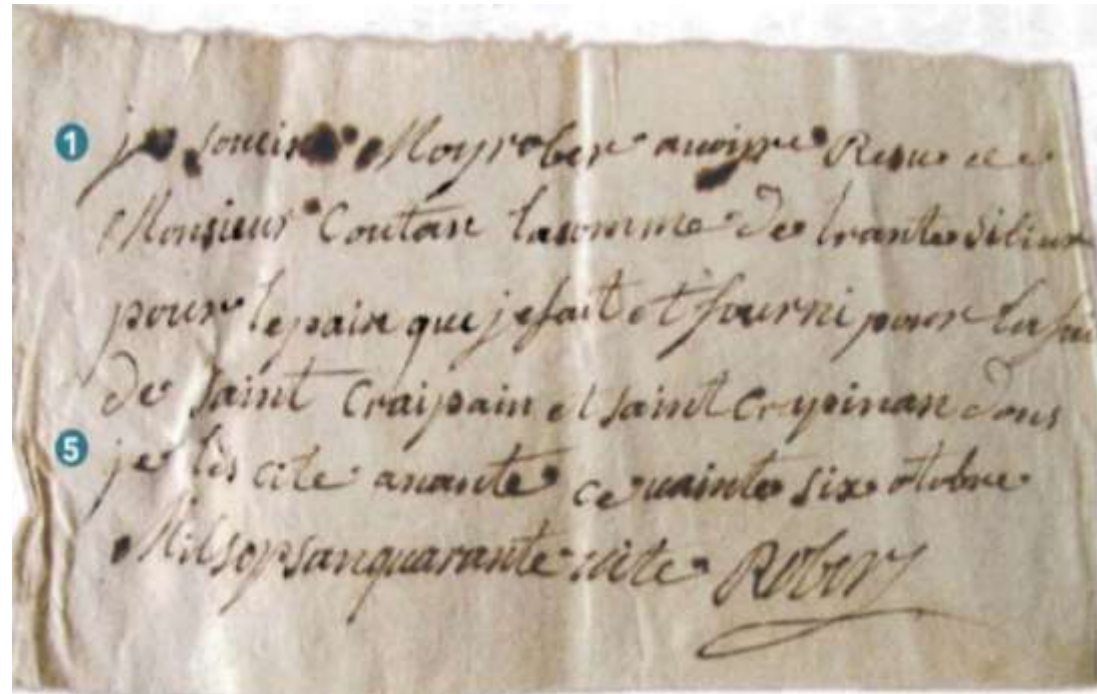 1 je soucine Moy rober avoipre Resu de
Monsieur Coutan lasomme de trante si livre
pour lepain que jefait et fourni pour la fai
de saint Craipain et saint Crepinan dons
5 je les cite anante ce vainte six otobre
Mil sepsanquarante uite Rober